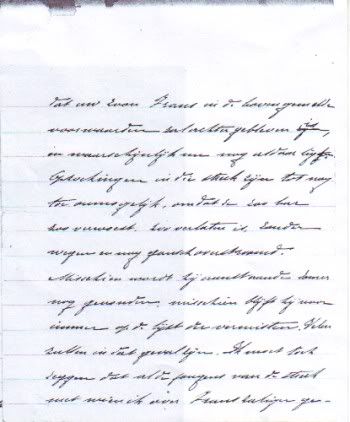 dat uw zoon Frans in de bovengemelde
voorwaarden zal achtergebleven zijn is,
en waarschijnlijk nu nog aldaar ligt.
Opzoekingen in die streek zijn tot nog
toe onmogelijk, omdat de zoo
zoo verwoest, zoo verlaten is, zonder
wegen en nog gansch overstroomd.
Misschien wordt hij aanstaande zomer
nog gevonden, misschien blijft hij voor
immer op de lijst der vermisten. Velen
zullen in dat geval zijn. Ik moet toch
zeggen dat al de jongens van de streek
met wien ik over Frans zaliger ge-